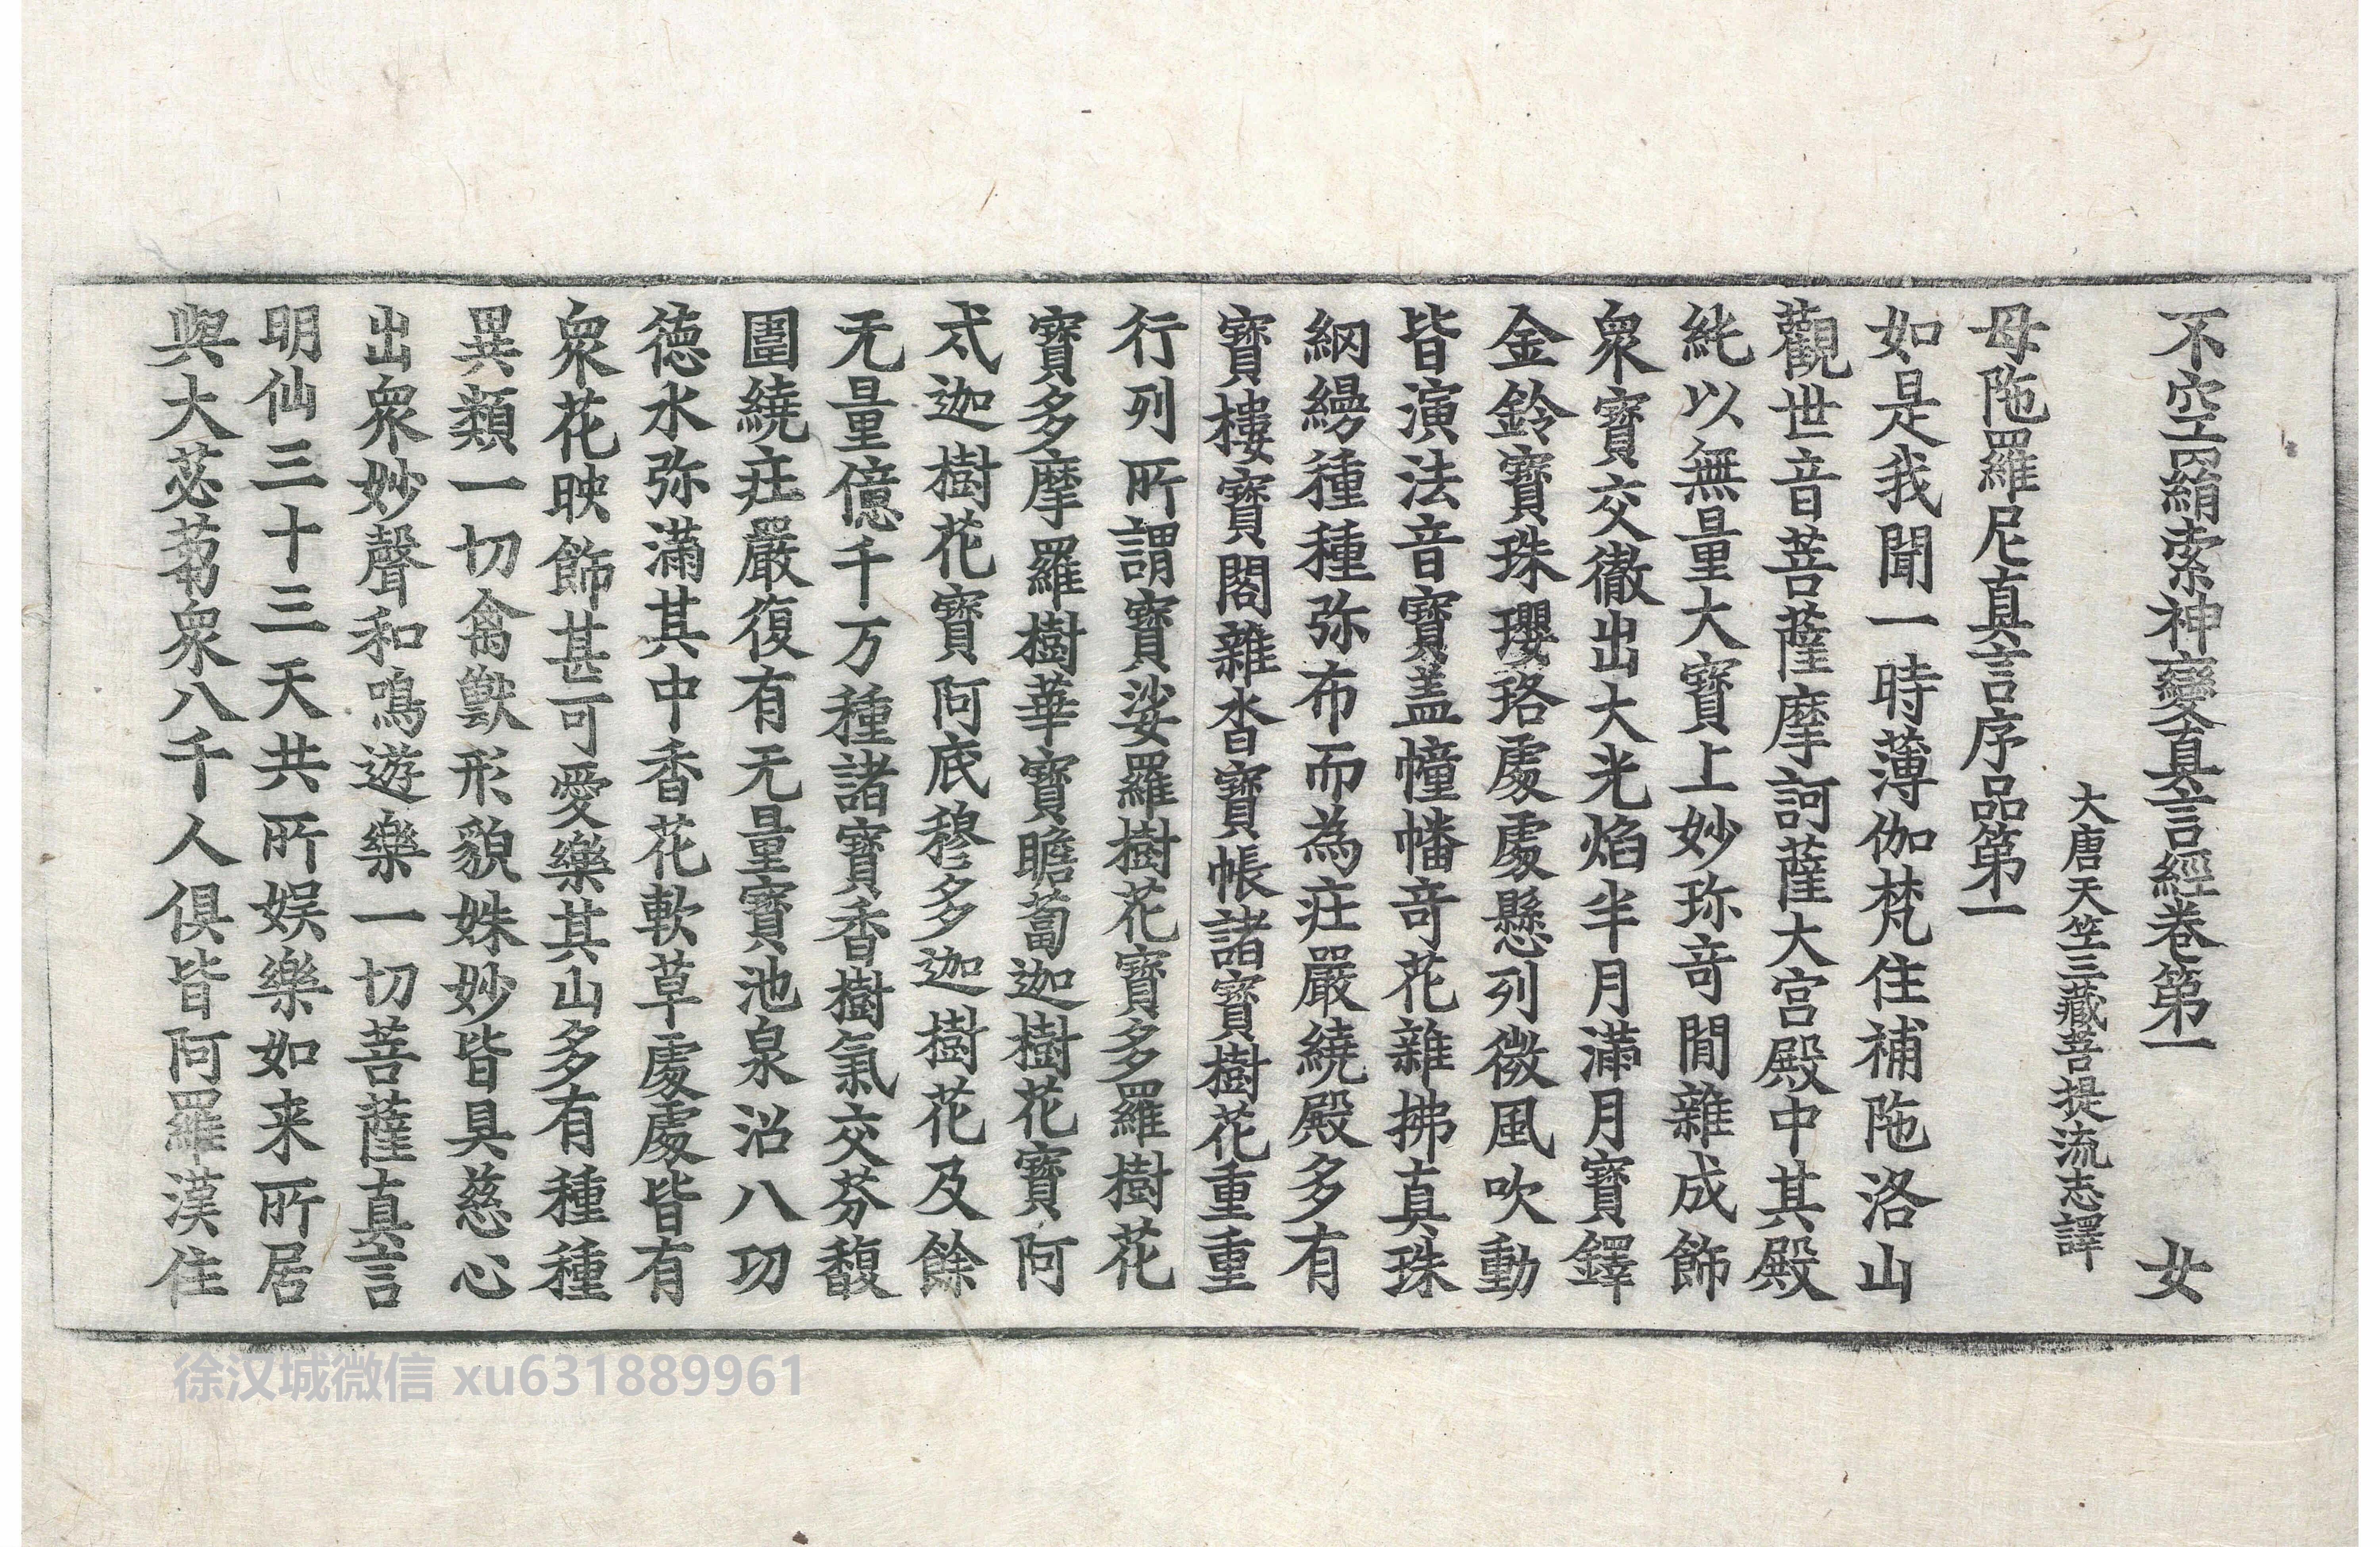 不空羂索神變真言經卷第一 女
大唐天竺三藏菩提流志譯
母陁羅尼真言序品第一
如是我聞一時薄伽梵住補陁洛山
觀世音菩薩摩訶薩大宮殿中其殿
純以無量大寶上妙珎竒閒雜成飾
衆寶交徹出大光焰半月滿月寶鐸
金鈴寶珠瓔珞處處懸列微風吹動
皆演法音寶盖幢幡竒花雜拂真珠
網縵種種弥布而為莊嚴繞殿多有
寶樓寶閣雜沓寶帳諸寶樹花重重
行列所謂寶娑羅樹花寶多羅樹花
寶多摩羅樹華寶瞻蔔迦樹花寶阿
弍迦樹花寶阿底穆多迦樹花及餘
无量億千万種諸寶香樹氣交芬馥
圍繞莊嚴復有无量寶池泉沼八功
德水弥滿其中香花軟草處處皆有
衆花映飾甚可愛樂其山多有種種
異類一切禽獸形貌姝妙皆具慈心
出衆妙聲和鳴遊樂一切菩薩真言
明仙三十三天共所娛樂如来所居
與大苾蒭衆八千人俱皆阿羅漢住
徐汉城微信 xu631889961